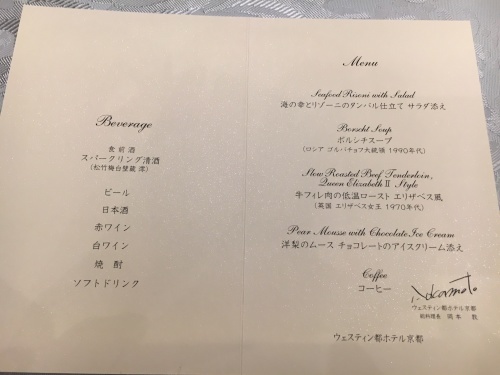 Beverage
食前酒
スパークリング清酒
(松竹梅白壁蔵 澪)
ビール
日本酒
赤ワイン
白ワイン
焼 酎
ソフトドリンク
Menu
Seafood Risoni with Salad
海の幸とリゾーニのタンバル仕立て サラダ添え
Borscht Soup
ボルシチスープ
(ロシア ゴルバチョフ大統領 1990年代)
Slow Roasted Beef Tenderloin,
Queen Elizabeth II Style
牛フィレ肉の低温ロースト エリザベス風
(英国 エリザベス女王 1970年代)
Pear Mousse with Chocolate Ice Cream
洋梨のムース チョコレートのアイスクリーム添え
Coffee
コーヒー
ウェスティン都ホテル京都
総料理長 岡本
ウェスティン都ホテル京都